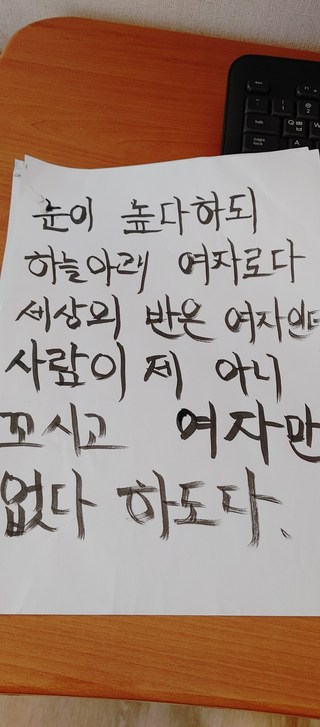 눈이 높다하되
하늘아래 여자로다
세상의 반은 여자인데
사람이 제 아니
꼬시고 여자만
없다 하도다.